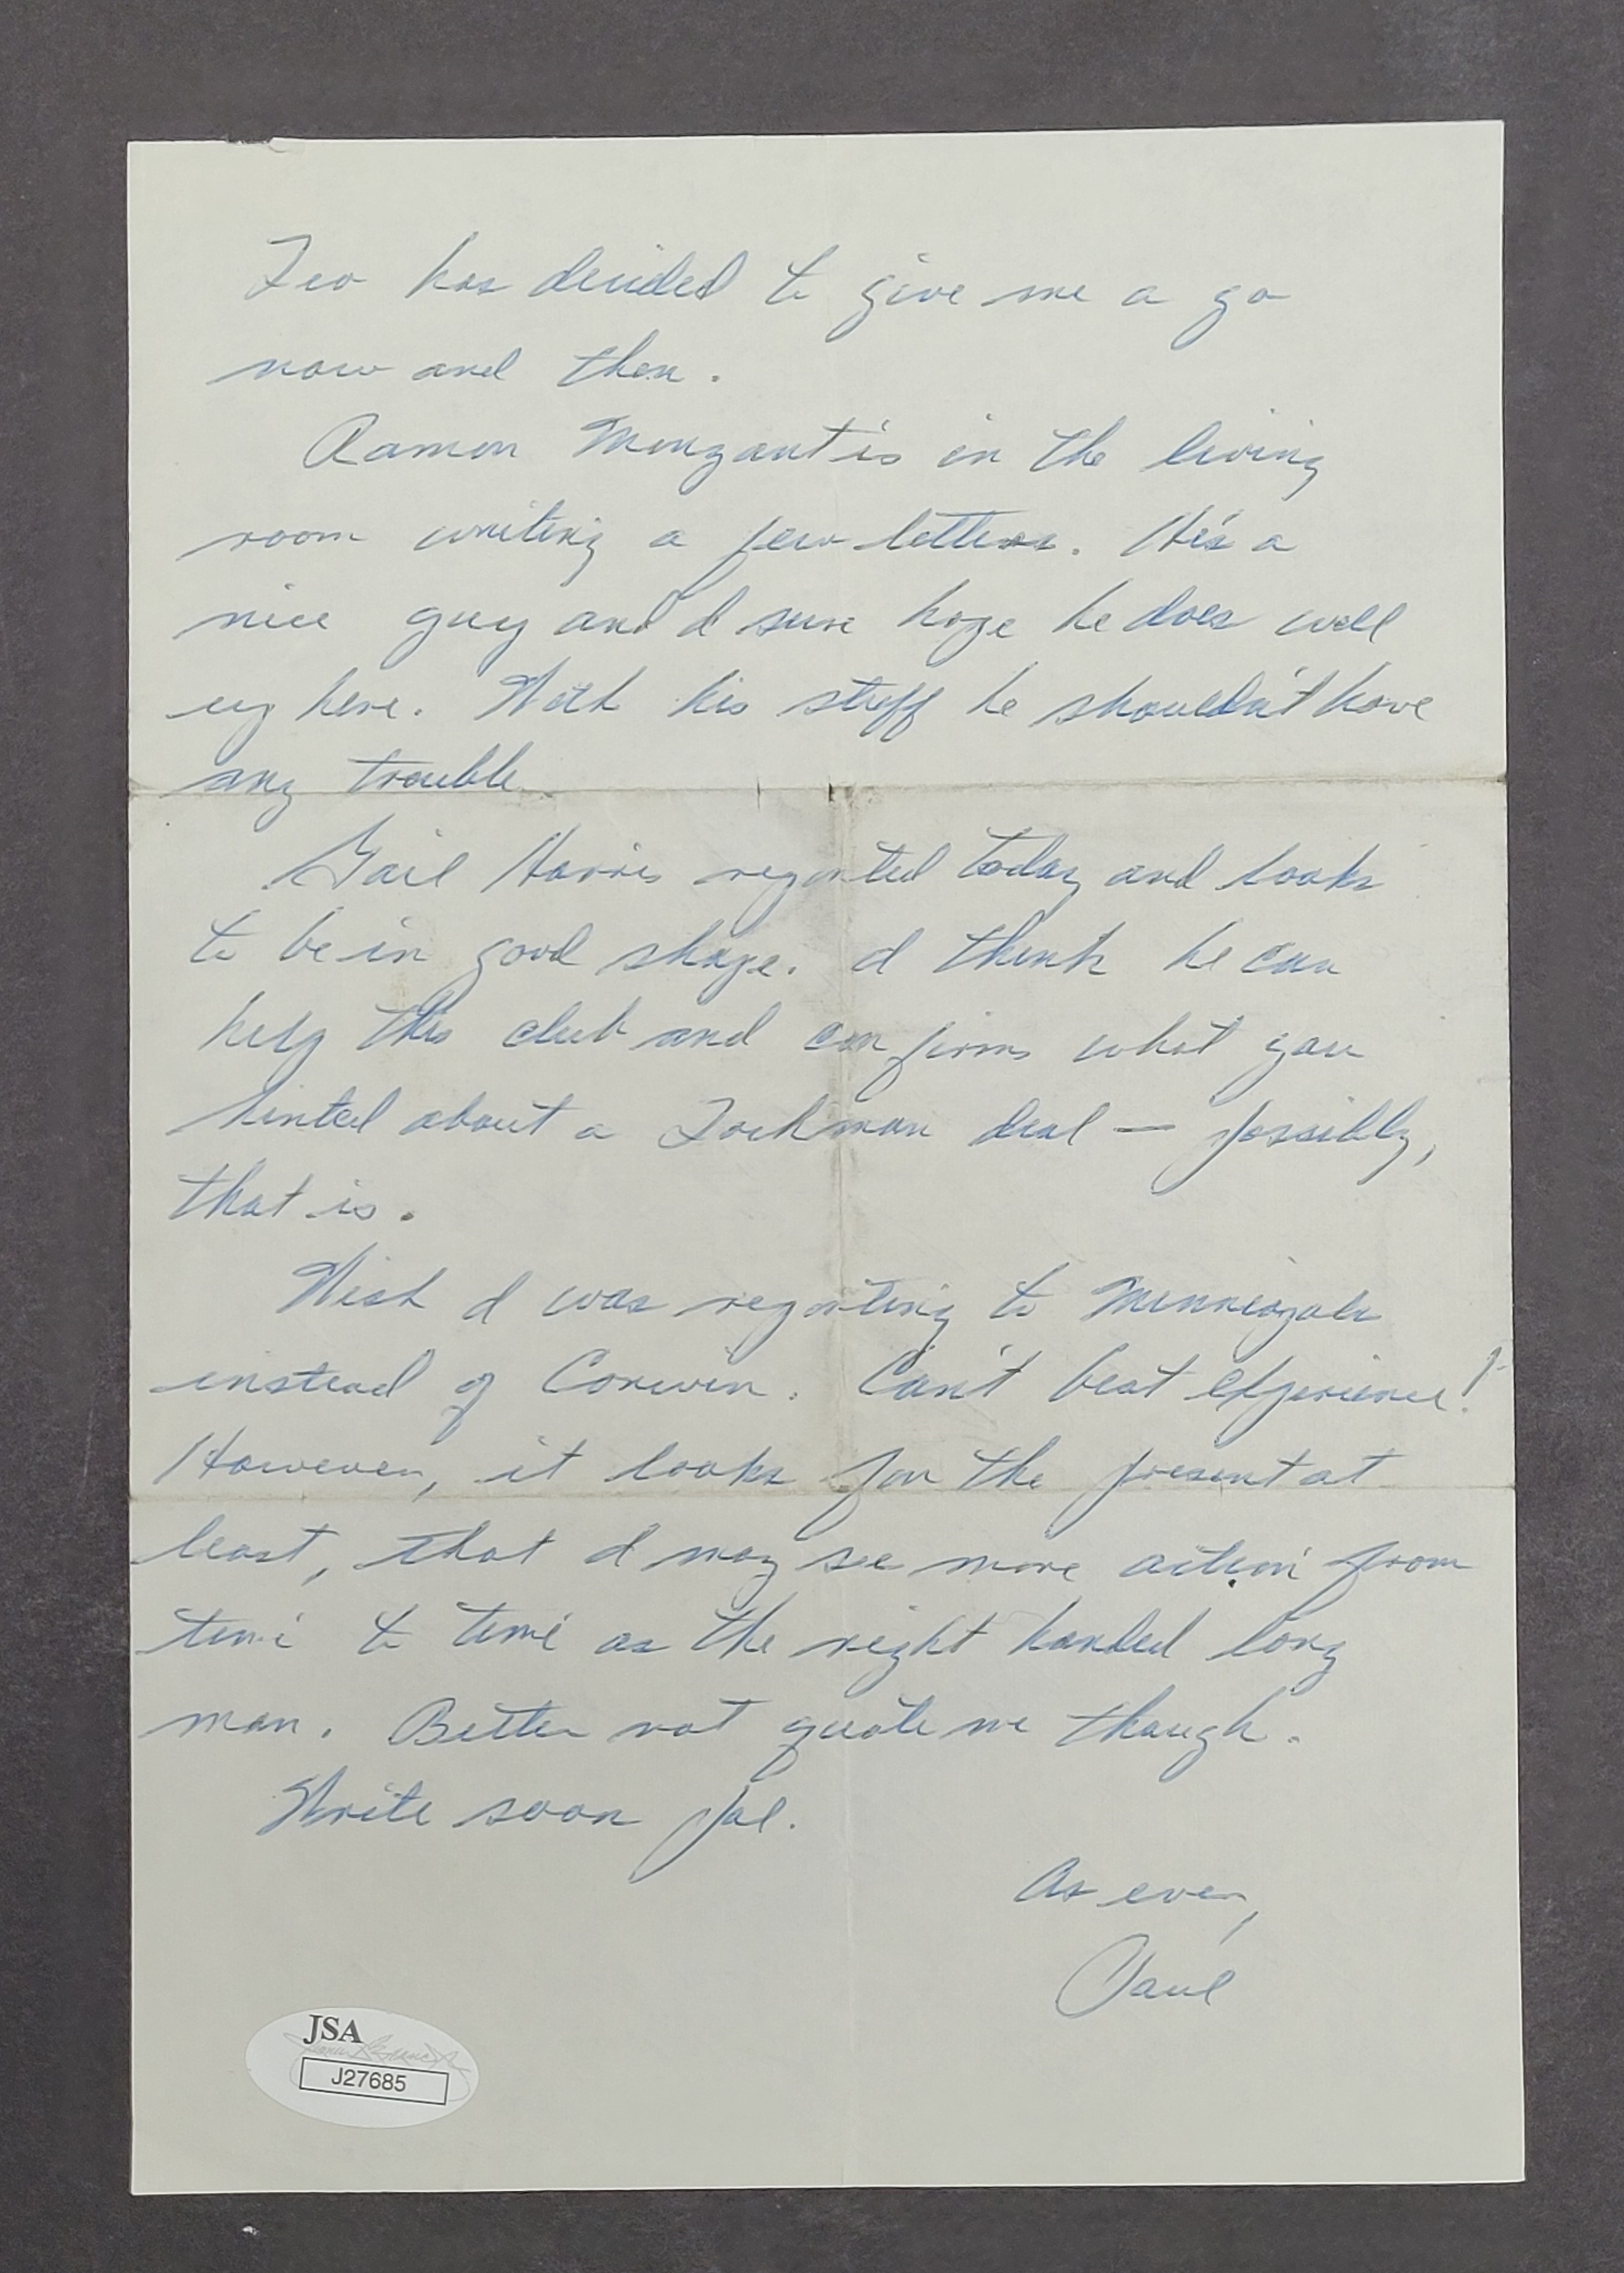 Leo has decided to give me a go
now and then.
Ramon Monzant is in the living
room writing a few letters. He's a
nice guy and I sure hope he does well
up here. With his stuff he shouldn't have
any trouble.
Gail Harris reported today and looks
to be in good shape. I think he can
help this club and confirms what you
hinted about a Lockman deal — possibly,
that is.
Wish I was reporting to Minneapolis
instead of Corwin. Can't beat experience!
However, it looks for the present at
least, that I may see more action from
time to time as the right handed long
man. Better not quote me though.
Write soon pal.
As ever,
Paul
JSA
J27685